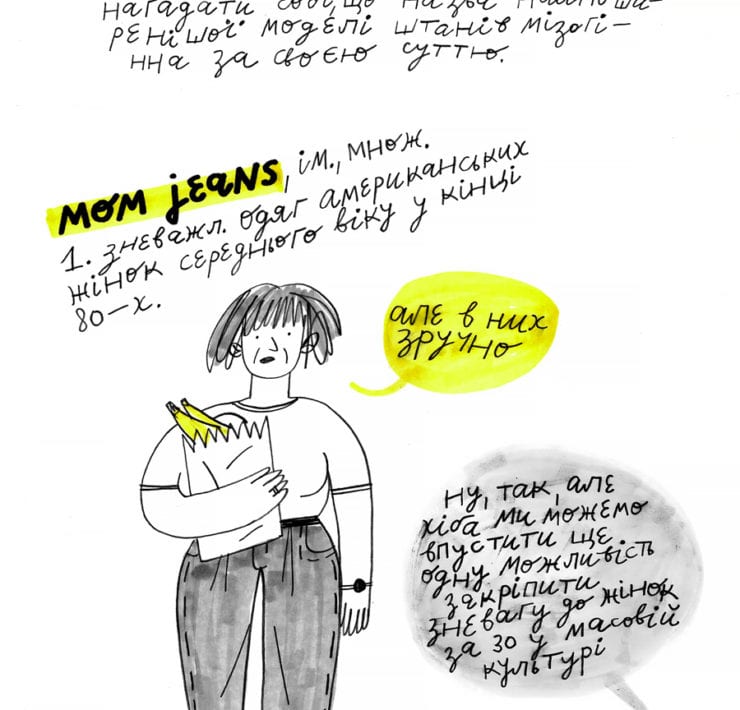 нагадати собі, що назва найпоши-
ренішої моделі штанів мізогі-
нна за своєю суттю.
mom jeans, ім., множ.
1. зневажл. одяг американських
жінок середнього віку у кінці
80-х.
але в них
зручно
ну, так, але
хіба ми можемо
впустити ще
одну можливість
закріпити
зневагу до жінок
за 30 у масовій
культурі